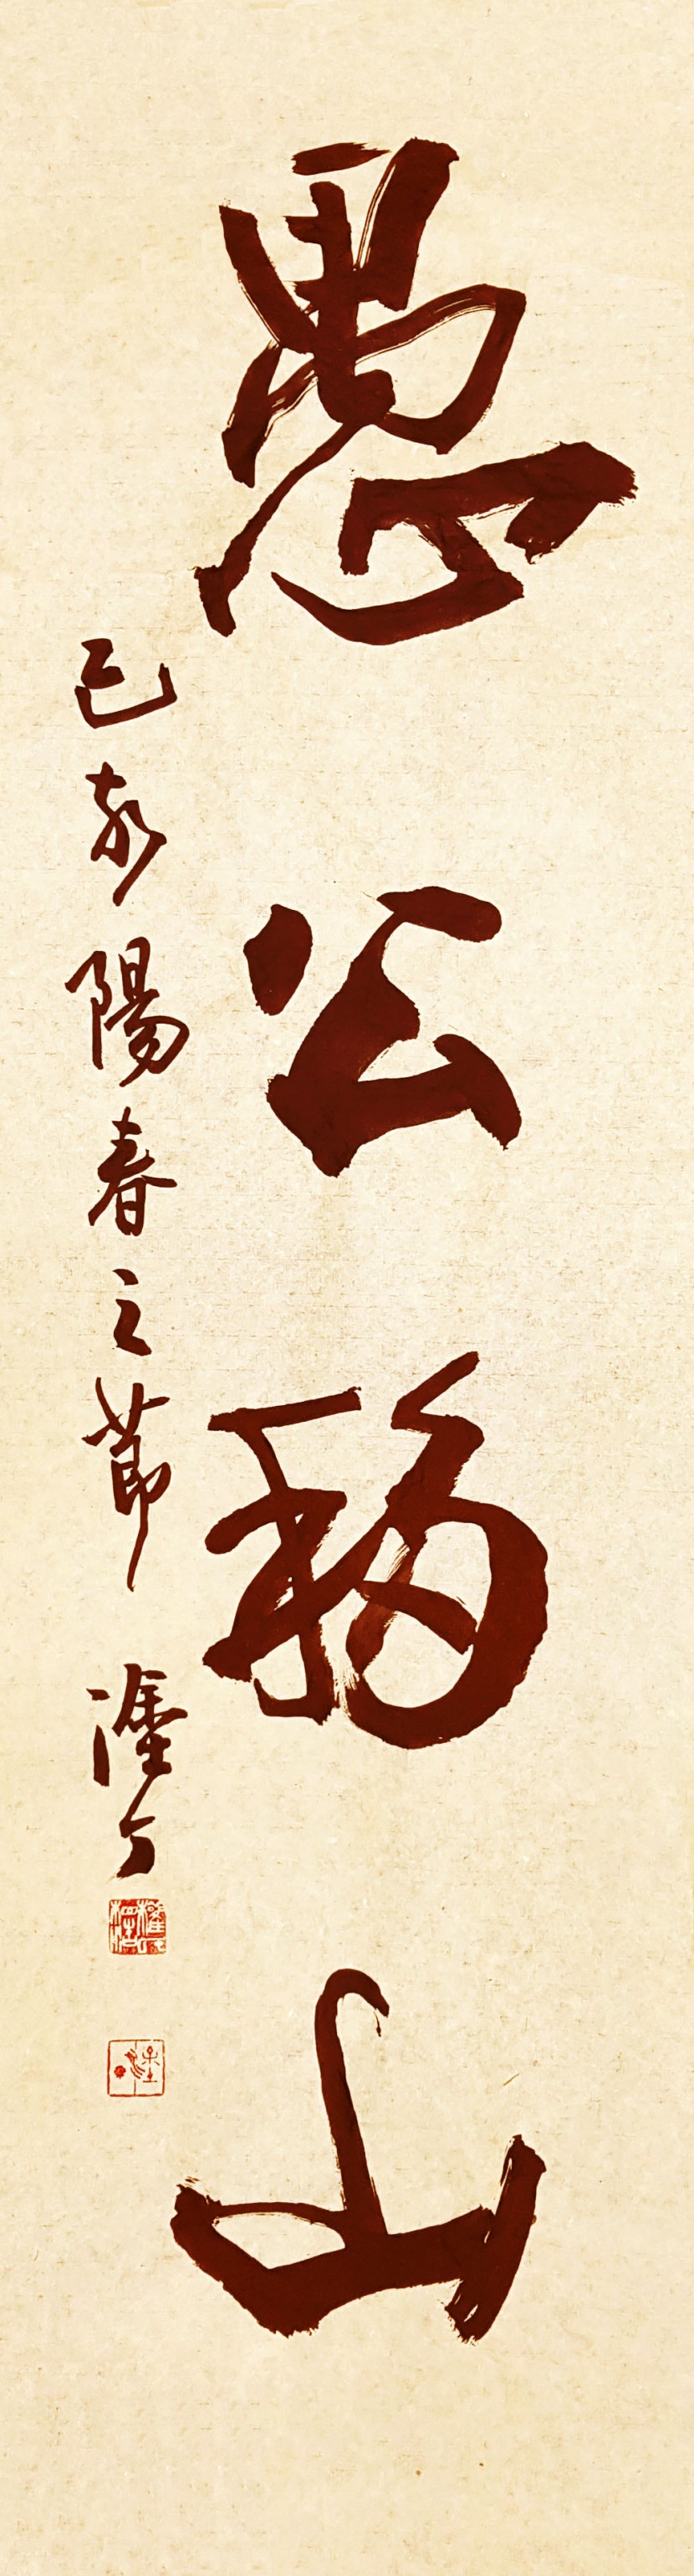 愚公移山
己亥陽春之節